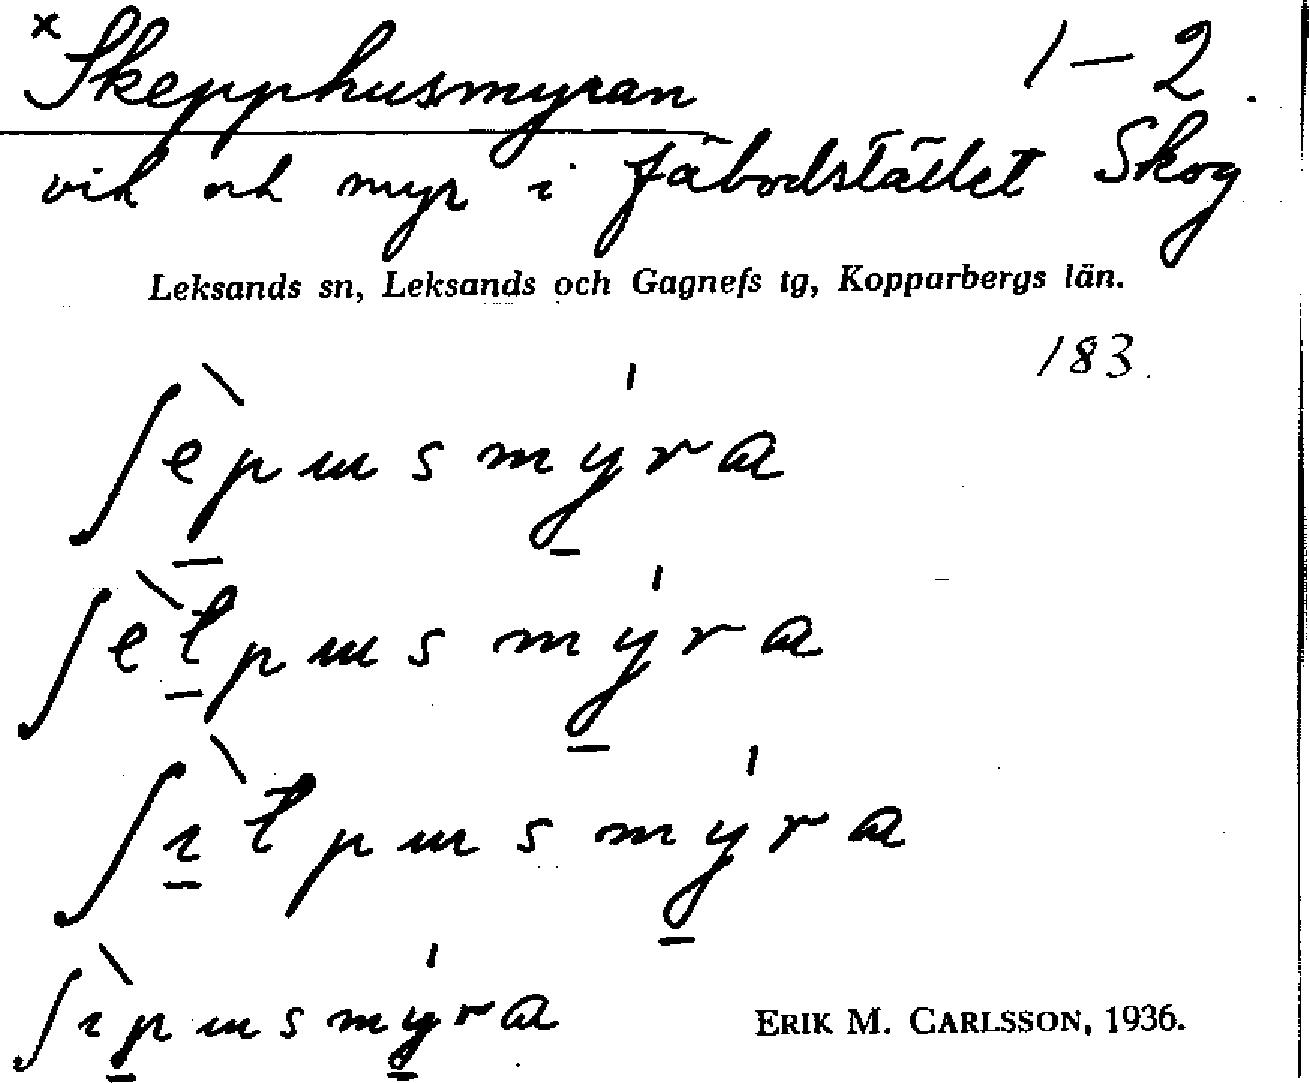 x Skepphusmyran 1-2.
vik och myr i fäbodstället Skog
Leksands sn, Leksands och Gagnefs tg, Kopparbergs län.
183.
ʃèpɯsmýra
ʃètpɯsmýra
ʃìtpɯsmýra
ʃìpɯsmýra
ERIK M. CARLSSON, 1936.